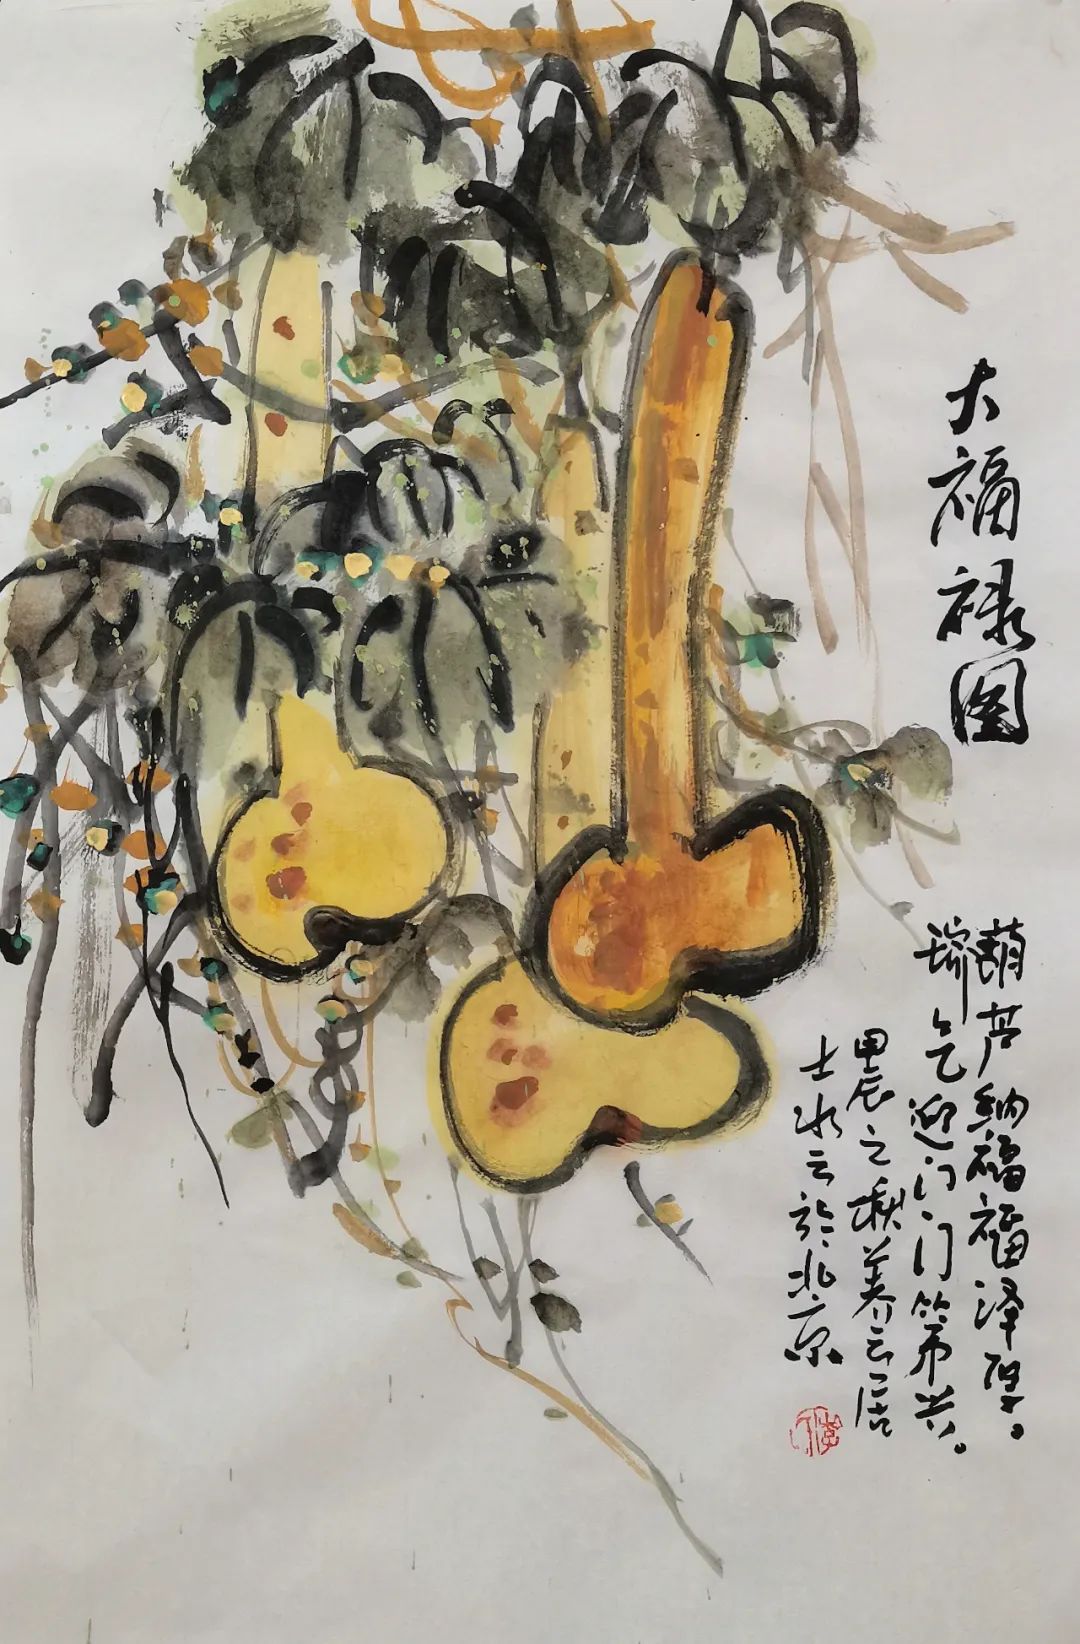 大福禄图
葫芦纳福福泽聚。
瑞气迎门门第兴。
甲辰之秋养云居
士水云於北京